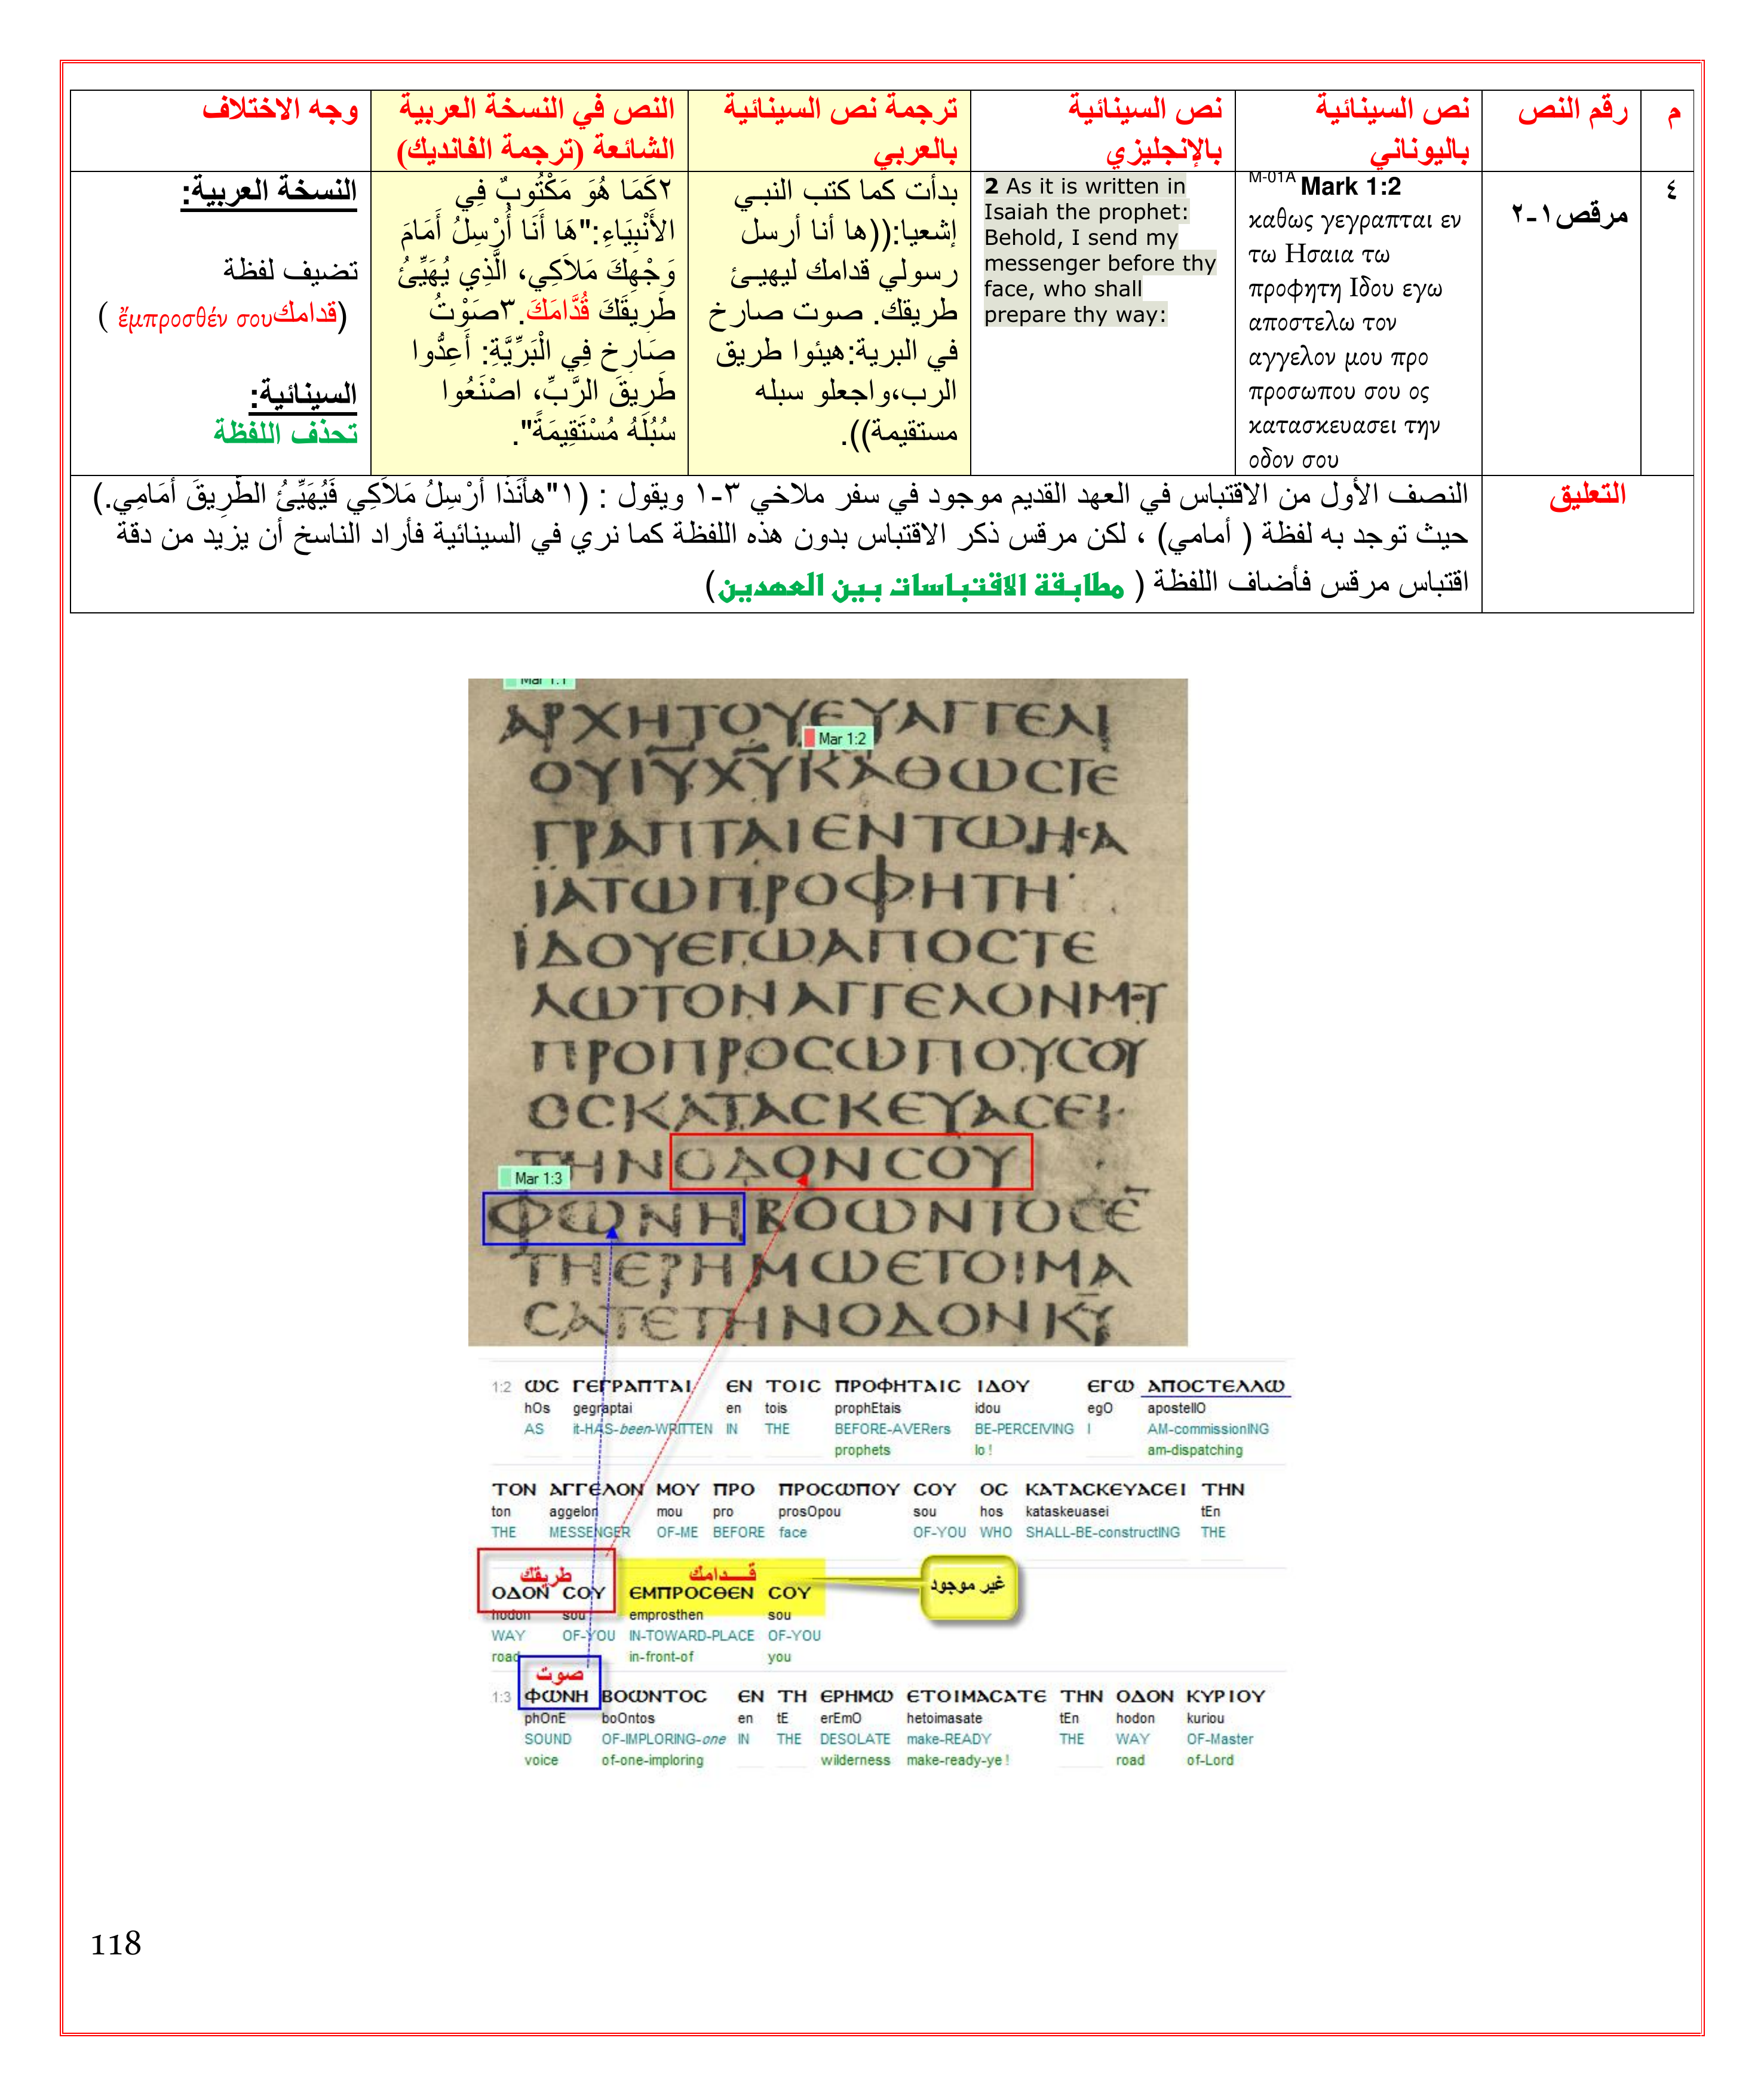 م
رقم النص
نص السينائية
باليوناني
نص السينائية
بالإنجليزي
ترجمة نص السينائية
بالعربي
النص في النسخة العربية
الشائعة (ترجمة الفانديك)
وجه الاختلاف
٤
مرقص١-٢
M-01A Mark 1:2
καθως γεγραπται εν
τω Ησαια τω
προφητη Ιδου εγω
αποστελω τον
αγγελον μου προ
προσωπου σου ος
κατασκευασει την
οδον σου
2 As it is written in
Isaiah the prophet:
Behold, I send my
messenger before thy
face, who shall
prepare thy way:
بدأت كما كتب النبي
إشعيا:((ها أنا أرسل
رسولي قدامك ليهيئ
طريقك. صوت صارخ
في البرية:هيئوا طريق
الرب،واجعلو سبله
مستقيمة)).
٢كَمَا هُوَ مَكْتُوبٌ فِي
الأَنْبِيَاءِ:"هَا أَنَا أُرْسِلُ أَمَامَ
وَجْهِكَ مَلاَكِي، الَّذِي يُهَيِّئُ
طَرِيقَكَ قُدَّامَكَ.٣صَوْتُ
صَارِخٍ فِي الْبَرِّيَّةِ: أَعِدُّوا
طَرِيقَ الرَّبِّ، اصْنَعُوا
سُبُلَهُ مُسْتَقِيمَةً".
النسخة العربية:
تضيف لفظة
(قدامكἔμπροσθέν σου )
السينائية:
تحذف اللفظة
التعليق
النصف الأول من الاقتباس في العهد القديم موجود في سفر ملاخي ٣-١ ويقول : (١"هأَنَذَا أُرْسِلُ مَلاَكِي فَيُهَيِّئُ الطَّرِيقَ أَمَامِي.)
حيث توجد به لفظة ( أمامي) ، لكن مرقس ذكر الاقتباس بدون هذه اللفظة كما نري في السينائية فأراد الناسخ أن يزيد من دقة
اقتباس مرقس فأضاف اللفظة ( مطابقة الاقتباسات بين العهدين)
Mar 1:1
ΑΡΧΗΤΟΥΕΥΑΓΓΕΛΙ
Mar 1:2
ΟΥΙΥΧΥΚΑΘΩϹΓΕ
ΓΡΑΠΤΑΙΕΝΤΩΗϹΑ
ΪΑΤΩΠΡΟΦΗΤΗ
ΪΔΟΥΕΓΩΑΠΟϹΤΕ
ΛΩΤΟΝΑΓΓΕΛΟΝΜΟΥ
ΠΡΟΠΡΟϹΩΠΟΥϹΟΥ
ΟϹΚΑΤΑϹΚΕΥΑϹΕΙ
ΤΗΝΟΔΟΝϹΟΥ
Mar 1:3
ΦΩΝΗΒΟΩΝΤΟϹΕ
ΤΗΕΡΗΜΩΕΤΟΙΜΑ
ϹΑΤΕΤΗΝΟΔΟΝΚΥ
1:2 ΩϹ ΓΕΓΡΑΠΤΑΙ ΕΝ ΤΟΙϹ ΠΡΟΦΗΤΑΙϹ ΙΔΟΥ ΕΓΩ ΑΠΟϹΤΕΛΛΩ
hOs gegraptai en tois prophEtais idou egO apostellO
AS it-HAS-been-WRITTEN IN THE BEFORE-AVERers BE-PERCEIVING I AM-commissionING
prophets lo ! am-dispatching
ΤΟΝ ΑΓΓΕΛΟΝ ΜΟΥ ΠΡΟ ΠΡΟϹΩΠΟΥ ϹΟΥ ΟϹ ΚΑΤΑϹΚΕΥΑϹΕΙ ΤΗΝ
ton aggelon mou pro prosOpou sou hos kataskeuasei tEn
THE MESSENGER OF-ME BEFORE face OF-YOU WHO SHALL-BE-constructING THE
طريقك قدامك
غير موجود
ΟΔΟΝ ϹΟΥ ΕΜΠΡΟϹΘΕΝ ϹΟΥ
hodon sou emprosthen sou
WAY OF-YOU IN-TOWARD-PLACE OF-YOU
road in-front-of you
صوت
1:3 ΦΩΝΗ ΒΟΩΝΤΟϹ ΕΝ ΤΗ ΕΡΗΜΩ ΕΤΟΙΜΑϹΑΤΕ ΤΗΝ ΟΔΟΝ ΚΥΡΙΟΥ
phOnE boOntos en tE erEmO hetoimasate tEn hodon kuriou
SOUND OF-IMPLORING-one IN THE DESOLATE make-READY THE WAY OF-Master
voice of-one-imploring wilderness make-ready-ye ! road of-Lord
118